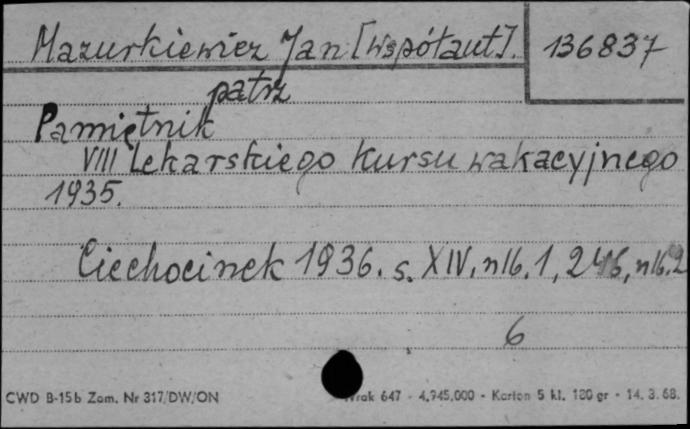 Mazurkiewicz Jan [Współaut]. 136837
patrz
Pamiętnik
VIII Lekarskiego Kursu wakacyjnego
1935.
Ciechocinek 1936. s. XIV, nlb. 1, 246, nlb. 2
6
CWD B-15b Zam. Nr 317/DW/ON rak 647 - 4.945.000 - Karton 5 kl. 180 gr - 14. 3. 68.